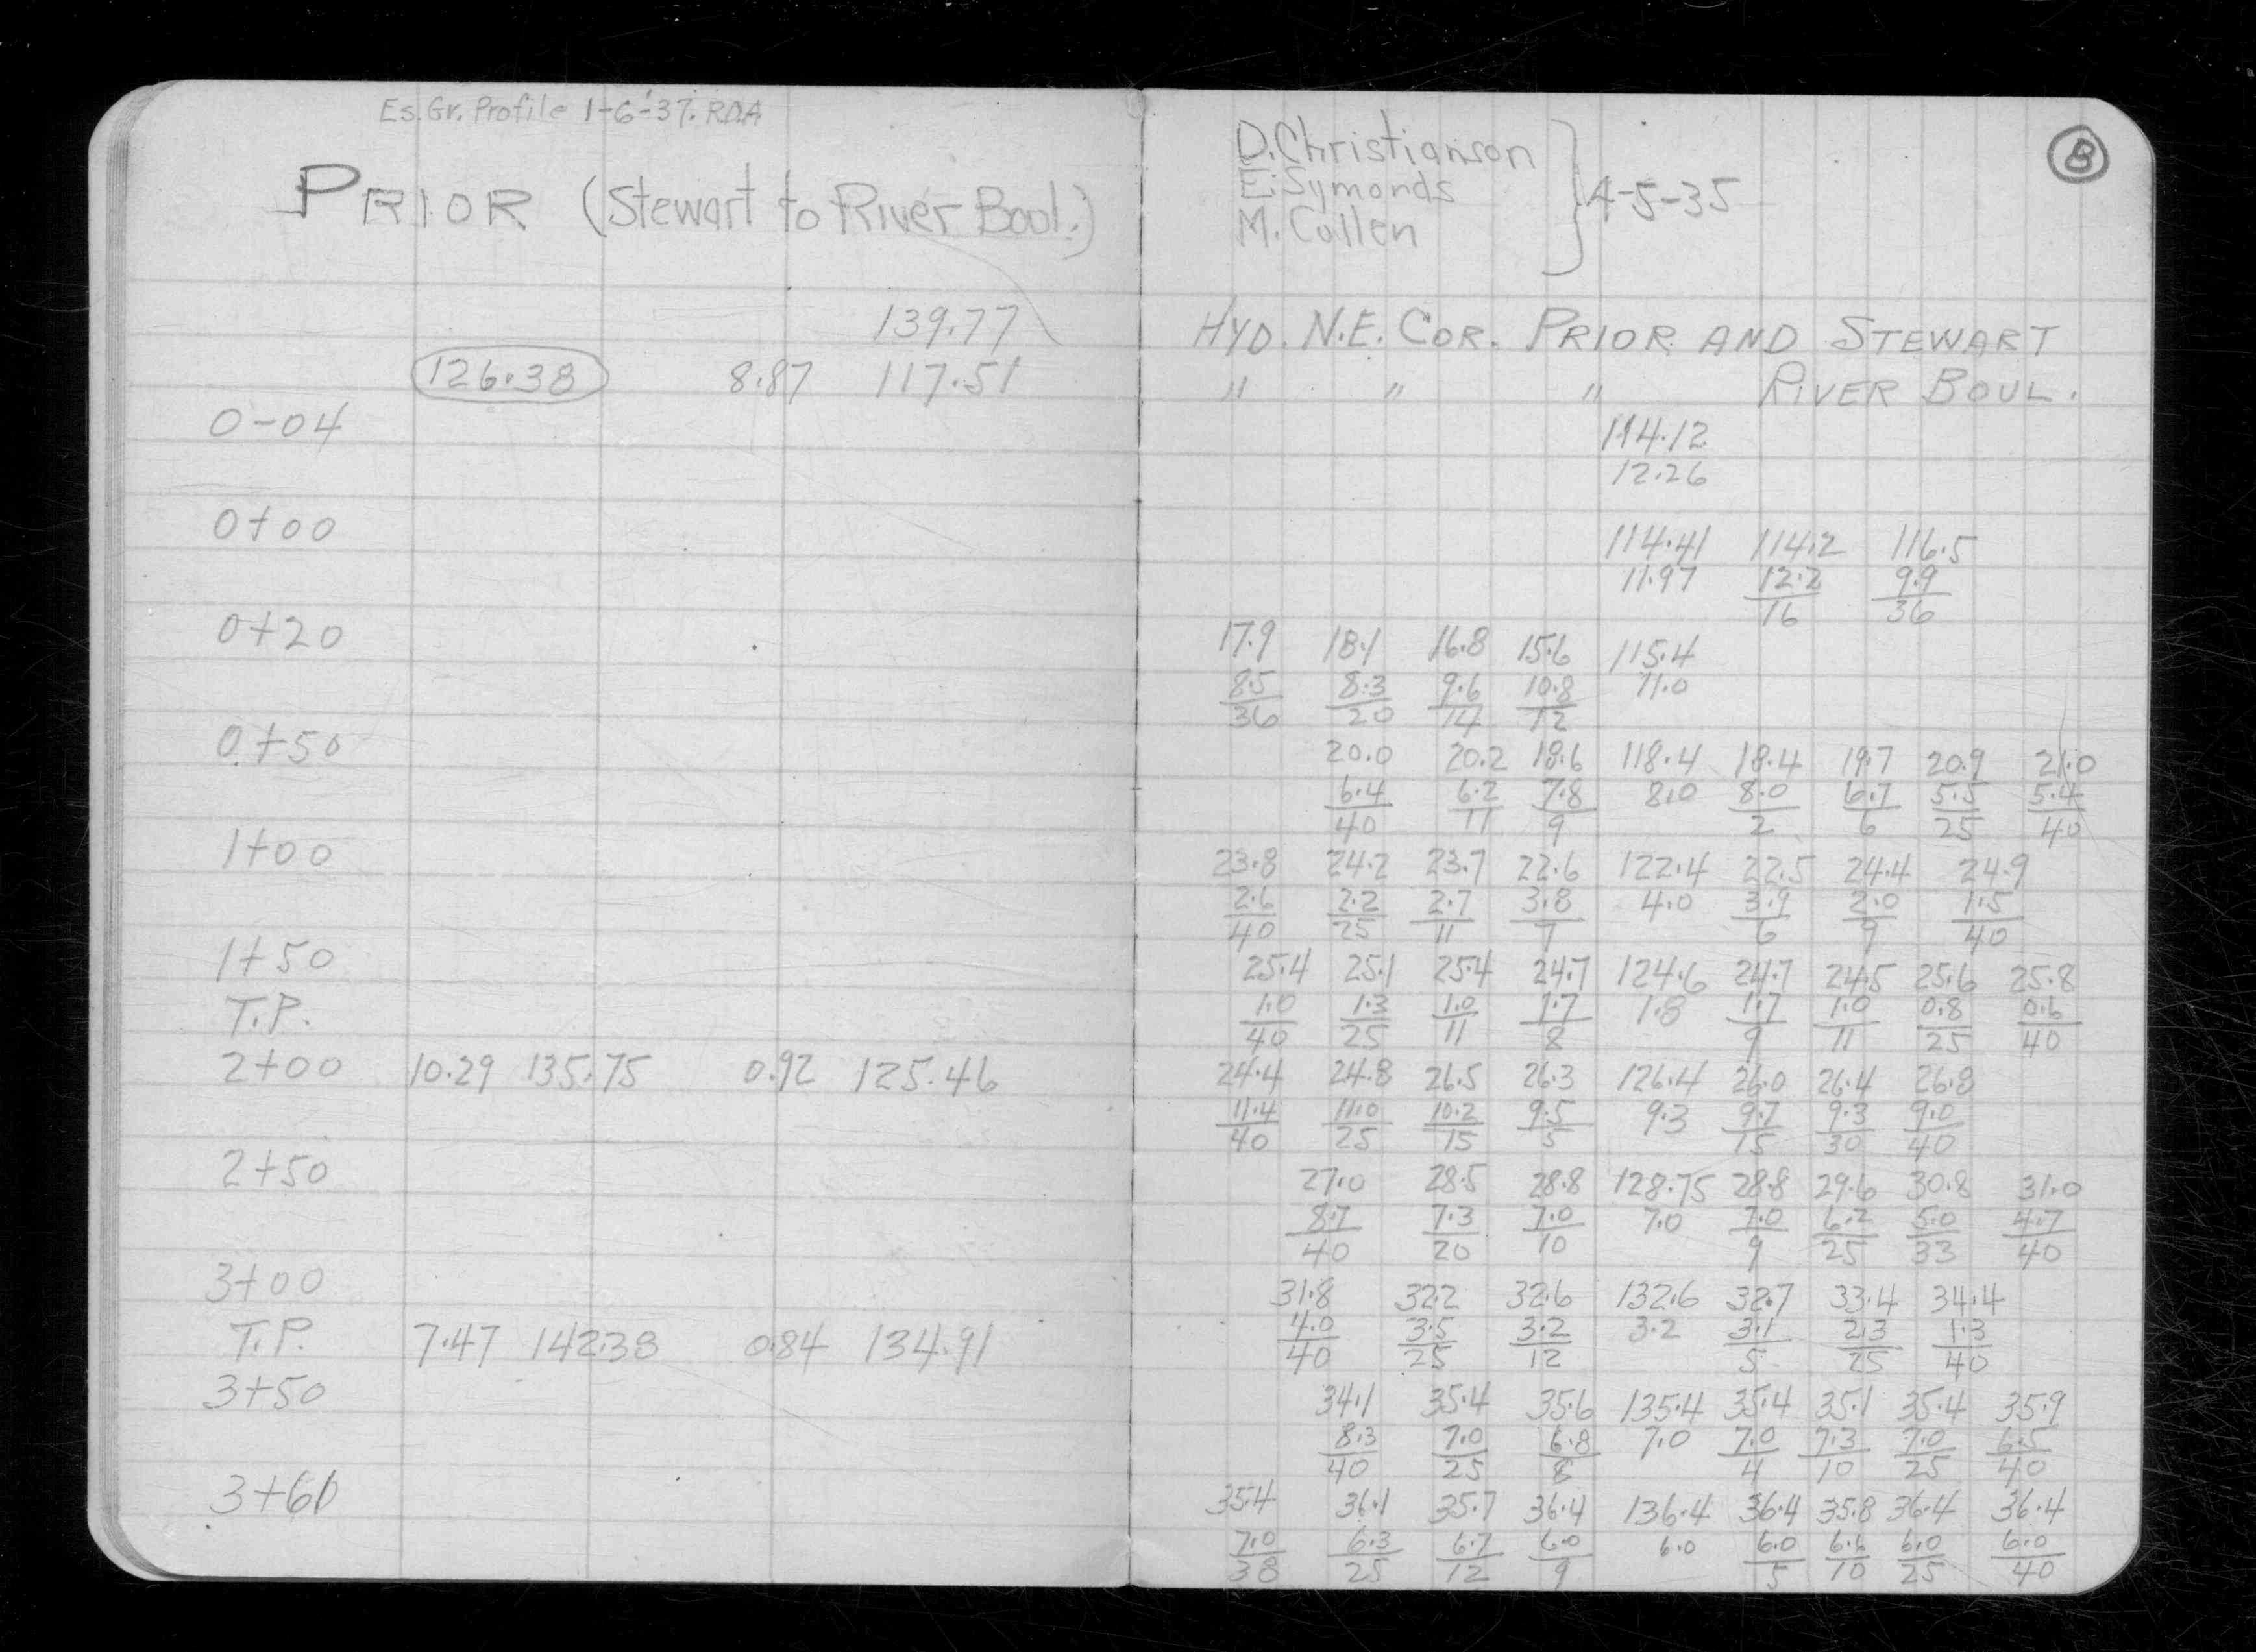 Es. Gr. Profile 1-6-37. RDA
PRIOR (Stewart to River Boul.)
139.77
126.38 8.87 117.51
0-04
0+00
0+20
0+50
1+00
1+50
T.P.
2+00 10.29 135.75 0.92 125.46
2+50
3+00
T.P. 7.47 142.38 0.84 134.91
3+50
3+60
D. Christianson
E. Symonds
M. Cullen
4-5-35
B
HYD. N.E. COR. PRIOR AND STEWART
" " " RIVER BOUL.
114.12
12.26
114.41 114.2 116.5
11.97 12.2 9.9
16 36
17.9 18.1 16.8 15.6 115.4
8.5 8.3 9.6 10.8 11.0
36 20 14 12
20.0 20.2 18.6 118.4 18.4 19.7 20.9 21.0
6.4 6.2 7.8 8.0 8.0 6.7 5.5 5.4
40 11 9 2 6 25 40
23.8 24.2 23.7 22.6 122.4 22.5 24.4 24.9
2.6 2.2 2.7 3.8 4.0 3.9 2.0 1.5
40 25 11 7 6 9 40
25.4 25.1 25.4 24.7 124.6 24.7 24.5 25.6 25.8
1.0 1.3 1.0 1.7 1.8 1.7 1.0 0.8 0.6
40 25 11 8 9 11 25 40
24.4 24.8 26.5 26.3 126.4 26.0 26.4 26.8
11.4 11.0 10.2 9.5 9.3 9.7 9.3 9.0
40 25 15 5 15 30 40
27.0 28.5 28.8 128.75 28.8 29.6 30.8 31.0
8.7 7.3 7.0 7.0 7.0 6.2 5.0 4.7
40 20 10 9 25 33 40
31.8 32.2 32.6 132.6 32.7 33.4 34.4
4.0 3.5 3.2 3.2 3.1 2.3 1.3
40 25 12 5 25 40
34.1 35.4 35.6 135.4 35.4 35.1 35.4 35.9
8.3 7.0 6.8 7.0 7.0 7.3 7.0 6.5
40 25 8 4 10 25 40
35.4 36.1 35.7 36.4 136.4 36.4 35.8 36.4 36.4
7.0 6.3 6.7 6.0 6.0 6.0 6.6 6.0 6.0
38 25 12 9 5 10 25 40